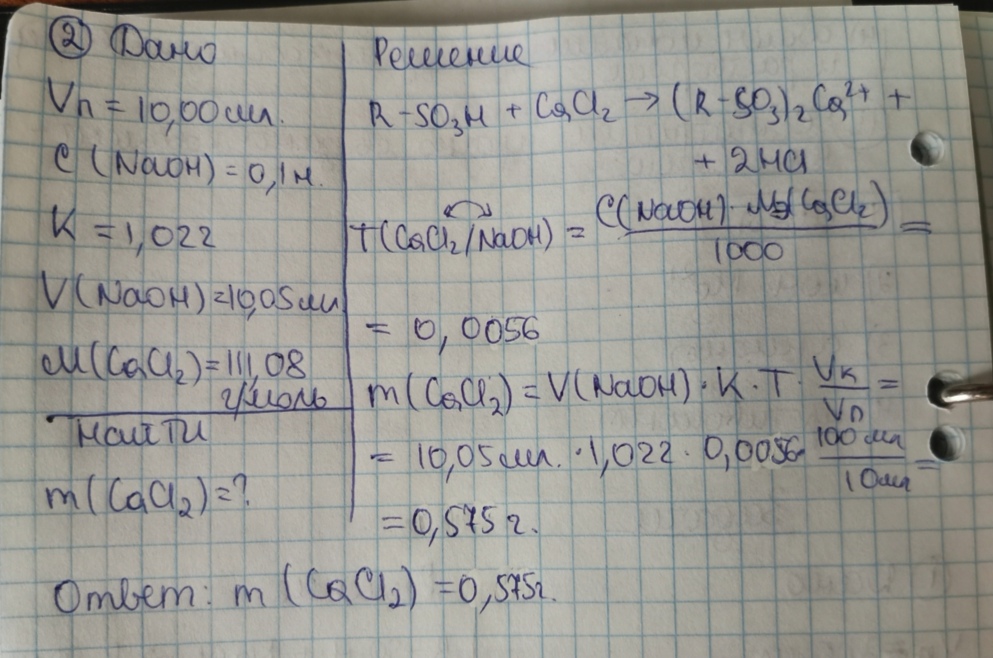 ② Дано
Vп = 10,00 мл.
C (NaOH) = 0,1 н.
K = 1,022
V(NaOH) = 10,05 мл
M(CaCl₂) = 111,08
г/моль
найти
m(CaCl₂) = ?
Решение
R-SO₃H + CaCl₂ → (R-SO₃)₂Ca²⁺ +
+ 2HCl
T(CaCl₂/NaOH) = C(NaOH) · Mэ(CaCl₂) / 1000 =
= 0,0056
m(CaCl₂) = V(NaOH) · K · T · Vк/Vп =
= 10,05 мл. · 1,022 · 0,0056 · 100 мл/10 мл =
= 0,575 г.
Ответ: m (CaCl₂) = 0,575г.